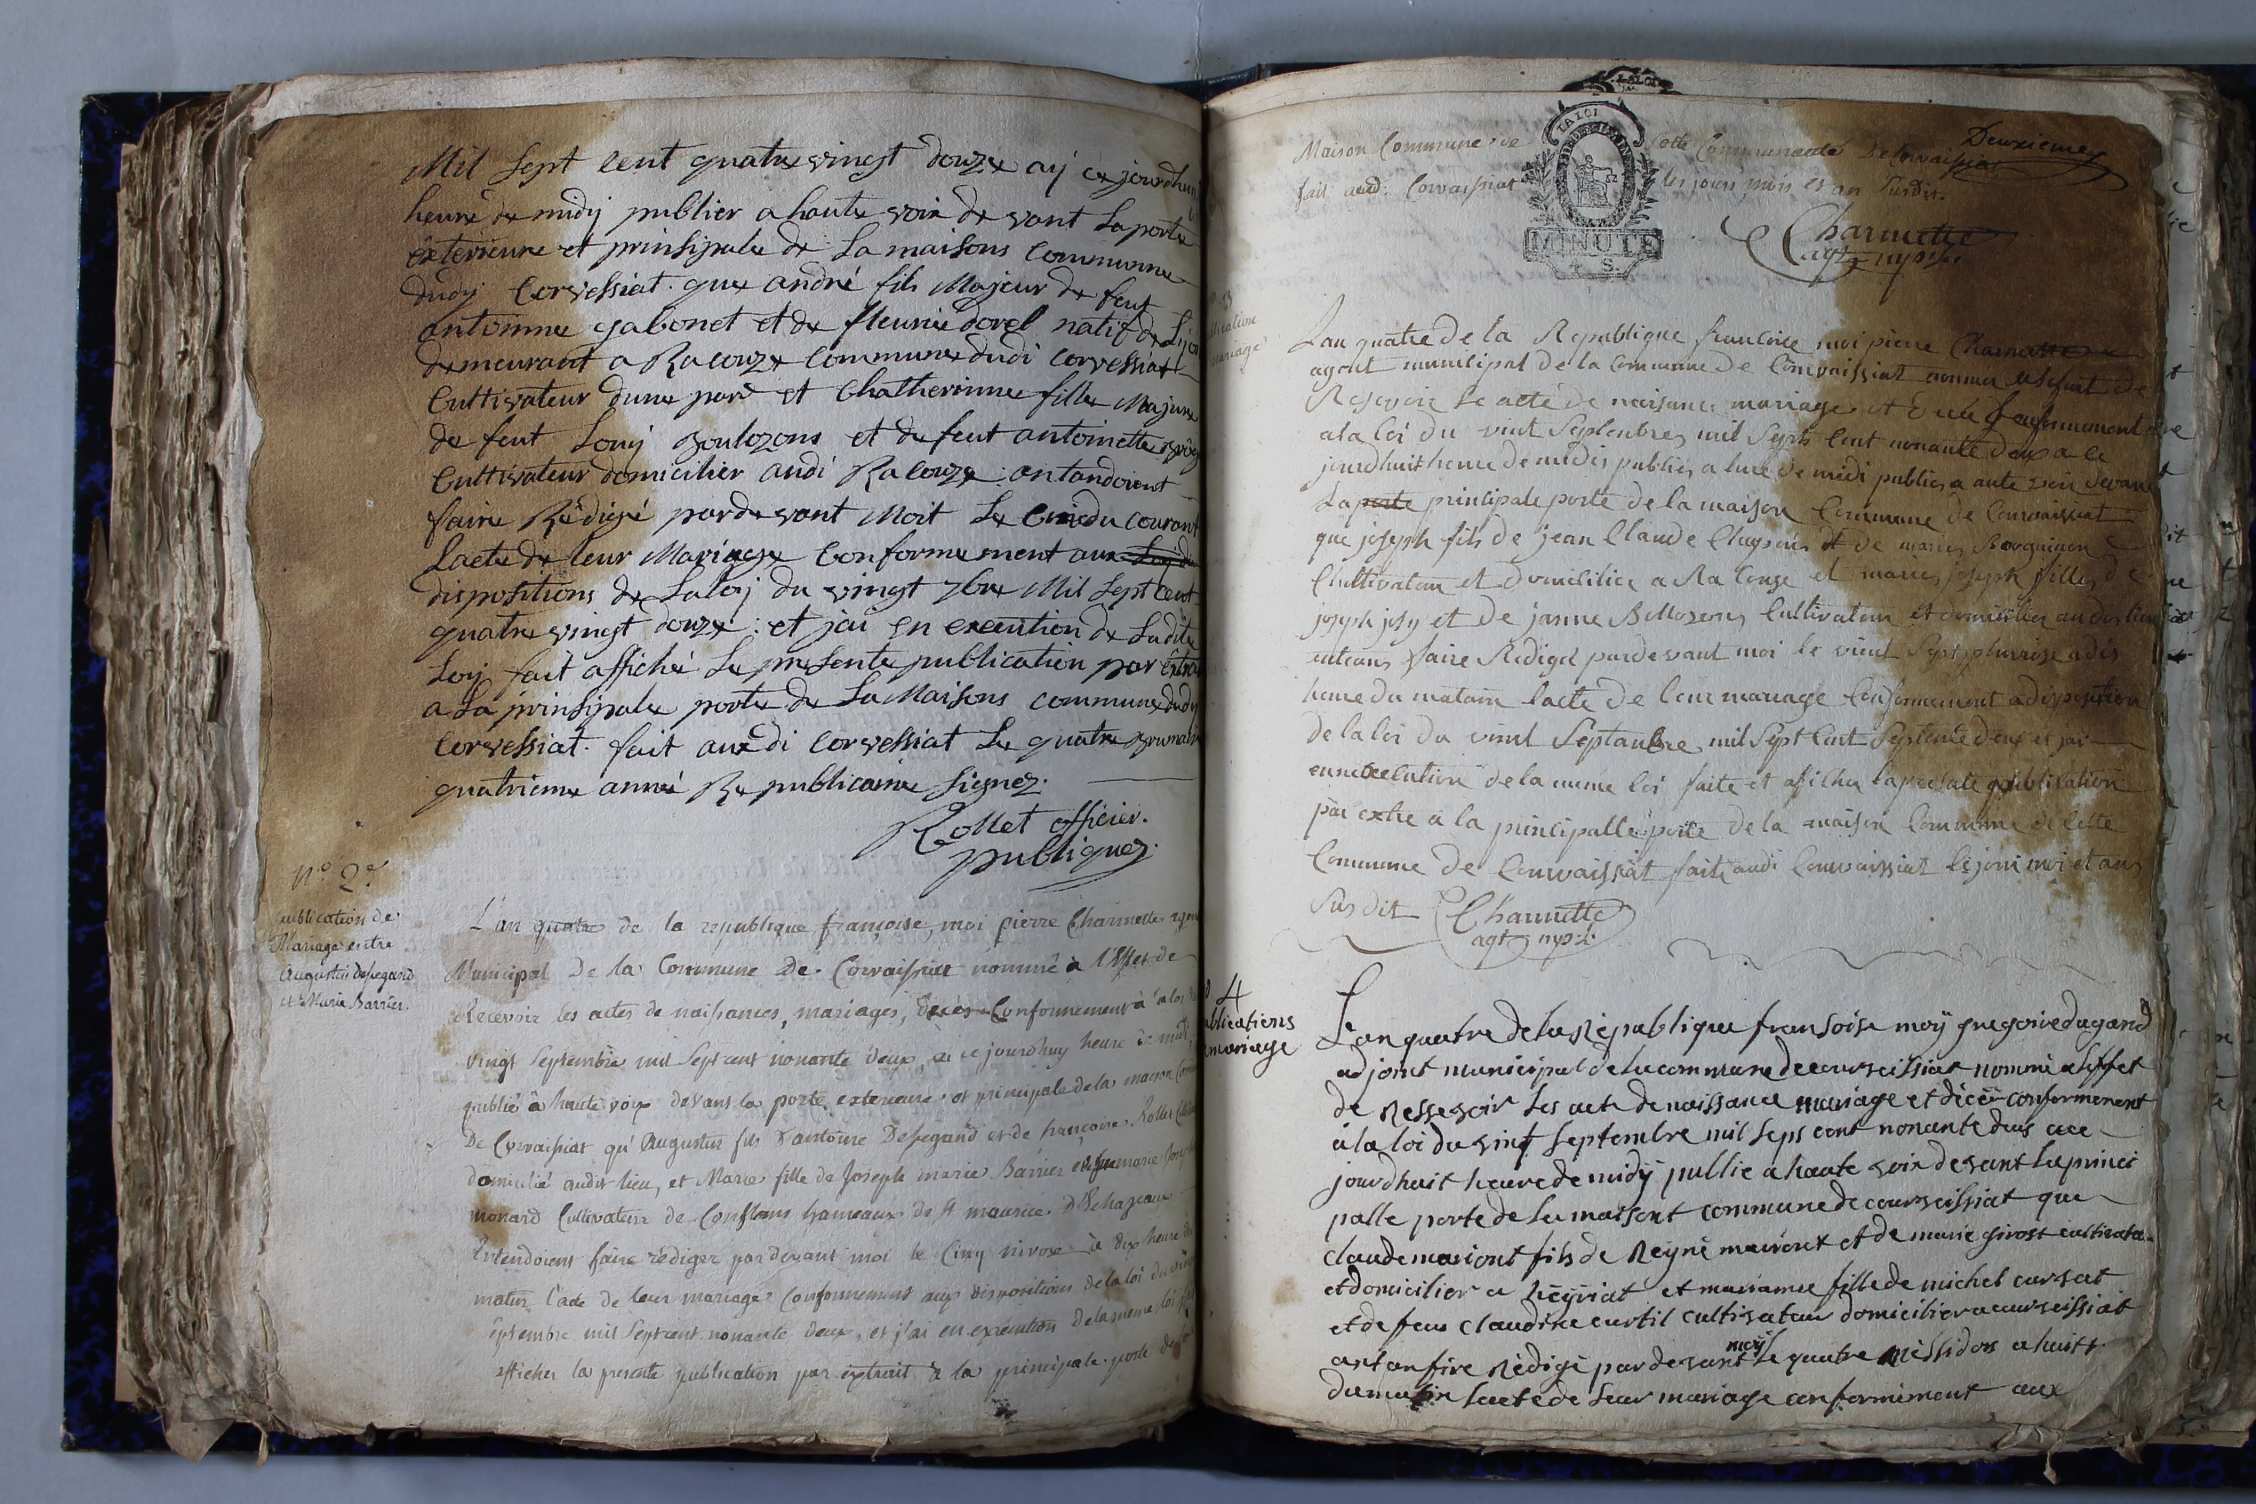 Mil Sept cent quatre vingt douze aÿ ce jourdhuy
heure de midy publier a haute voix de vant La porte
exterieure et prinsipale de La maisons Commune
dudy Corvessiat. que andré fils Majeur de feut
antoinne gabonet et de fleurie dorel natif de
demeurant a Racouze Commune dudi Corvessiat
Cultivateur dune pard et Chatherinne fille Majeure
de feut Louy et de feut antoinette
Cultivateur domicilier audi Racouze: antandoient
faire Rédigé pardevant Moit Le du Courant
Lacte de leur Mariage Conformement aux
dispositions de La loy du vingt 7bre Mil Sept Cent
quatre vingt douze: et jai en execution de Ladite
Loy fait affiché Le presente publication par
a La prinsipale porte de La Maisons commune dudy
Corvessiat. fait audi Corvessiat Le quatre
quatrieme anné Republicaine Signez.
Rollet officier.
publique.
n° 2e
publication de
Mariage entre
Augustin desegand
et Marie Barrier.
L'an quatre de la republique françoise, moi pierre Charnette
Municipal De la Commune De. Corvaissiat nommé à l'Effet de
Recevoir les actes de naissances, mariages, Décès Conformement à la loi
vingt Septembre mil Sept cent nonante deux, ce jourdhuy heure de midi
publié à haute voix devant la porte exterieure et principale de la maison
De Corvaissiat qu'Augustin fils d'antoine Desegand et de françoise Rollet
domicilié audit lieu, et Marie fille de Joseph marie Barrier et de marie
monard Cultivateur de Conflans hameaux de St maurice D'Echazeaux
Entendoient faire rédiger par devant moi le Cinq nivose à dix heure
matin l'acte de leur mariage Conformement aux dispositions de la loi du
Septembre mil Sept cent nonante deux, et j'ai en execution de la meme loi
afficher la presente publication par extrait à la principale porte de
Deuxieme
Maison Commune de cette Communauté De Corvaissiat
fait audi Corvaissiat les jours mois et an Susdit.
LA LOI
MINUTE
S.
Charnette
agt
3
publication
mariage
L'an quatre de la Republique francoise moi pierre Charnette
agent municipal de la Commune de Corvaissiat nommer a lefait de
Resevoir le acte de naisance mariage et Conformement
a la loi du vint Septenbre, mil Sept Cent nonante deux a ce
jourdhuit heure de midis publies a lure de midi publies a aute voir devant
La porte principale porte de la maison Commune de Corvaissiat
que joseph fils de jean Claude et de marie
Cultivateur et domicilier a Racouze et marie joseph fille de
joseph et de janne Cultivateur et domicilier audis lieu
entean faire Rediger pardevant moi le vient Sept pluviose a dis
heure du matain lacte de leur mariage Conformement a disposition
de la loi du vint Septanbre mil Sept Cent Septente deux et jai
en nexecution de la meme loi faite et afficher la presate publication
par extre a la principalle porte de la maison Commune de Cette
Commune de Corvaissiat fait audi Corvaissiat les jour moi et an
Sus dit Charnette
agt
4
publications
mariage
Lan quatre de la Republique fransoise moÿ gregoire dugand
adjoint municipal de la commune de courveissiat nommé a leffet
de Ressevoir les acte de naissance mariage et décée conformement
a la loi du vint septembre mil seps cent nonante deus a ce
jourdhuit heure de midÿ publie a haute voix devant la princi
palle porte de la maisont commune de courveissiat que
claude mariont fils de Reyné mariont et de marie givost cultivateur
et domicilier a Reÿriat et mariamee fille de michel cursat
et de feue claudine curtil cultivateur domicilier a curveissiat
antan fire rédigé par devant moÿ le quatre messidor a huitt
du matin lacte de leur mariage conformiment aux